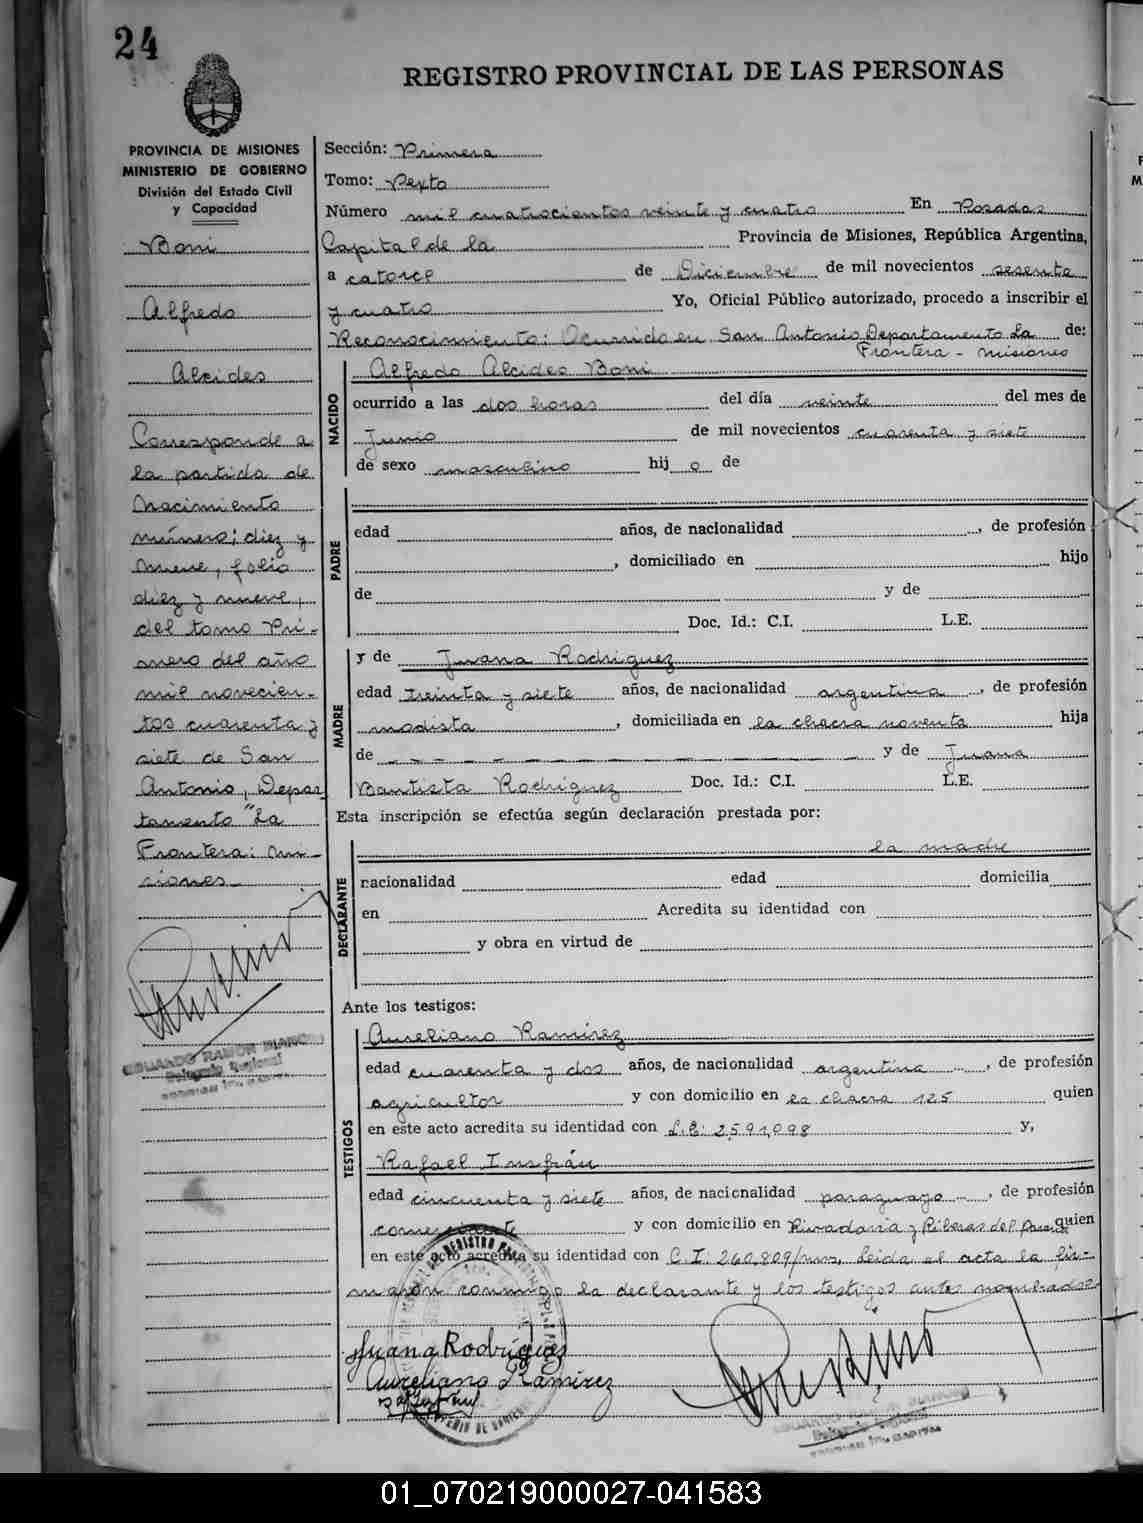 24
REGISTRO PROVINCIAL DE LAS PERSONAS
PROVINCIA DE MISIONES
MINISTERIO DE GOBIERNO
División del Estado Civil
y Capacidad
Boni
Alfredo
Alcides
Corresponde a
la partida de
Nacimiento
número: diez y
nueve, folio
diez y nueve,
del tomo Pri-
mero del año
mil novecien-
tos cuarenta y
siete de San
Antonio, Depar
tamento "La
Frontera: Mi-
siones
EDUARDO RAMON BLANCO
Delegado Regional
Sección: Primera
Tomo: Sexto
Número mil cuatrocientos veinte y cuatro En Posadas
Capital de la Provincia de Misiones, República Argentina,
a catorce de Diciembre de mil novecientos sesenta
y cuatro Yo, Oficial Público autorizado, procedo a inscribir el
Reconocimiento: Ocurrido en San Antonio, Departamento La de:
Frontera - Misiones
NACIDO
Alfredo Alcides Boni
ocurrido a las dos horas del día veinte del mes de
Junio de mil novecientos cuarenta y siete
de sexo masculino hij o de
PADRE
edad años, de nacionalidad , de profesión
, domiciliado en hijo
de y de
Doc. Id.: C.I. L.E.
MADRE
y de Juana Rodriguez
edad treinta y siete años, de nacionalidad argentina , de profesión
modista , domiciliada en la chacra noventa hija
de - - - - - - - - - - - - - - y de Juana
Bautista Rodríguez Doc. Id.: C.I. L.E.
Esta inscripción se efectúa según declaración prestada por:
DECLARANTE
la madre
nacionalidad edad domicilia
en Acredita su identidad con
y obra en virtud de
Ante los testigos:
TESTIGOS
Aureliano Ramírez
edad cuarenta y dos años, de nacionalidad argentina , de profesión
agricultor y con domicilio en la chacra 125 quien
en este acto acredita su identidad con L.E: 2.591,098 y,
Rafael Insfrán
edad cincuenta y siete años, de nacionalidad paraguayo , de profesión
comerciante y con domicilio en Rivadavia y Riberas del Paraná quien
en este acto acredita su identidad con C.I: 260,809/ leida el acta la fir-
maron conmigo la declarante y los testigos antes nombrados
Juana Rodríguez
Aureliano Ramirez
EDUARDO RAMON BLANCO
Delegado Regional
01_070219000027-041583